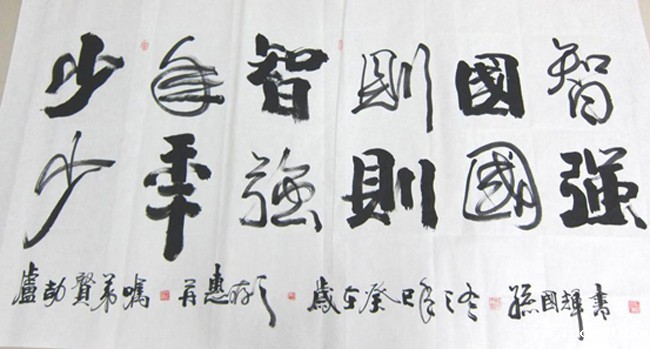 少年智則國智
少年强則國强
盧賢弟囑 惠存 歲在癸巳年之冬 孫國輝書